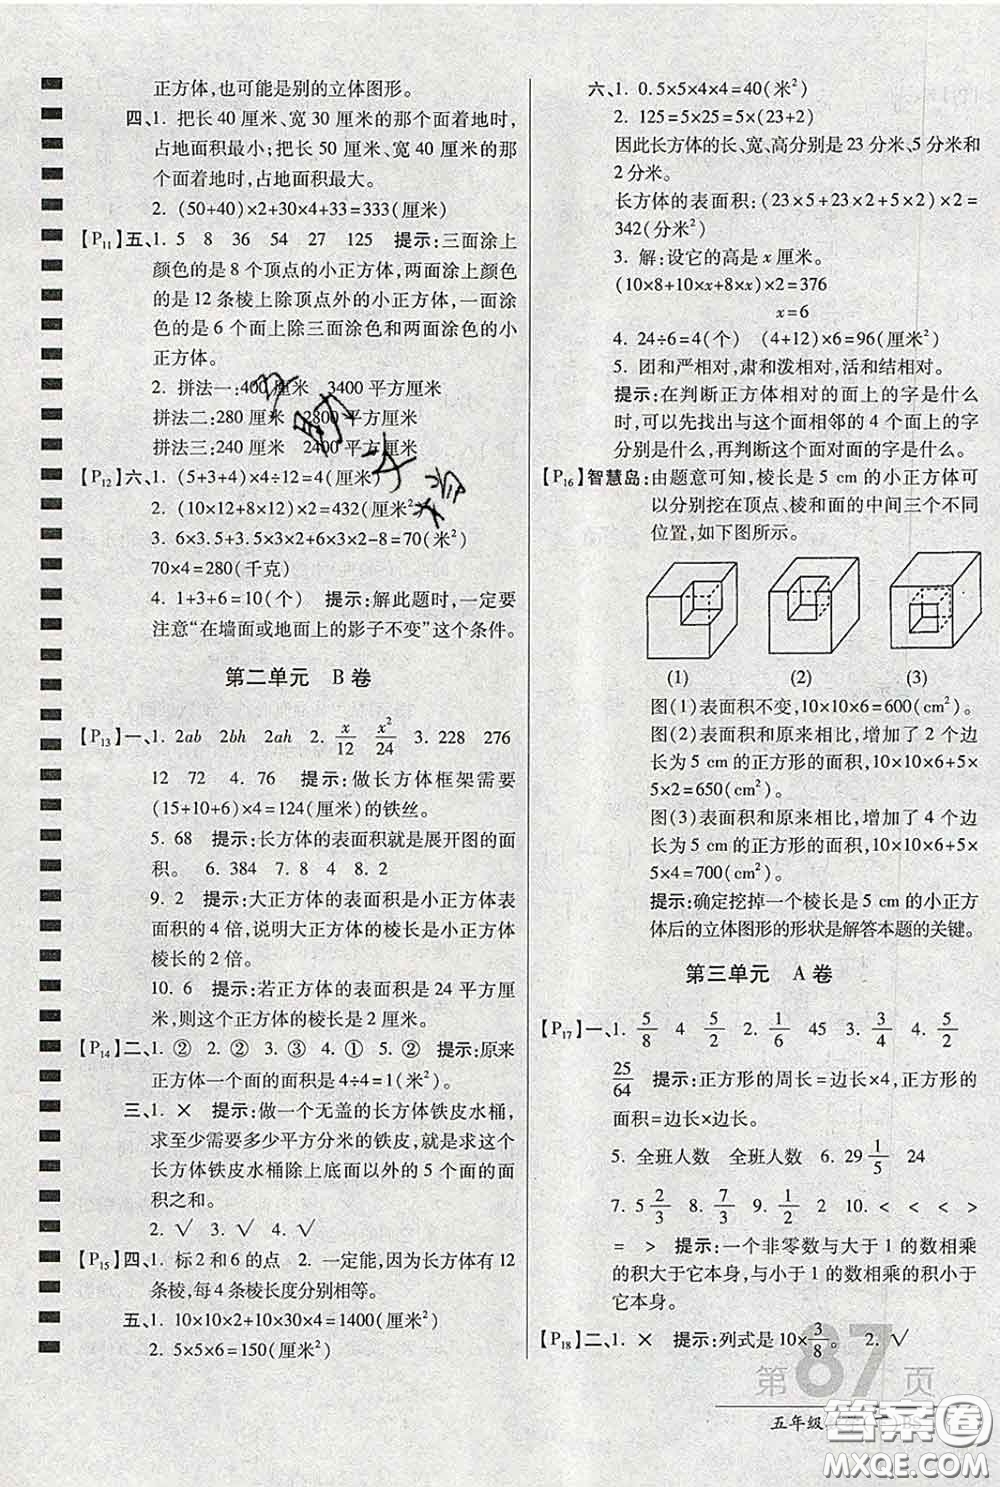 正方体,也可能是别的立体图形。
四、1. 把长 40 厘米、宽 30 厘米的那个面着地时,
占地面积最小;把长 50 厘米、宽 40 厘米的
那个面着地时,占地面积最大。
2. (50+40)×2+30×4+33=333(厘米)
【P11】五、1. 5 8 36 54 27 125 提示:三面涂上
颜色的是 8 个顶点的小正方体,两面涂上颜色
的是 12 条棱上除顶点外的小正方体,一面涂
色的是 6 个面上除三面涂色和两面涂色的小
正方体。
2. 拼法一:400 厘米 3400 平方厘米
拼法二:280 厘米 2800 平方厘米
拼法三:240 厘米 2400 平方厘米
【P12】六、1. (5+3+4)×4÷12=4(厘米)
2. (10×12+8×12)×2=432(厘米²)
3. 6×3.5+3.5×3×2+6×3×2-8=70(米²)
70×4=280(千克)
4. 1+3+6=10(个) 提示:解此题时,一定要
注意“在墙面或地面上的影子不变”这个条件。
第二单元 B 卷
【P13】一、1. 2ab 2bh 2ah 2. x/12 x²/24 3. 228 276
12 72 4. 76 提示:做长方体框架需要
(15+10+6)×4=124(厘米)的铁丝。
5. 68 提示:长方体的表面积就是展开图的面
积。 6. 384 7. 8 4 8. 2
9. 2 提示:大正方体的表面积是小正方体表
面积的 4 倍,说明大正方体的棱长是小正方体
棱长的 2 倍。
10. 6 提示:若正方体的表面积是 24 平方厘
米,则这个正方体的棱长是 2 厘米。
【P14】二、1. ② 2. ② 3. ③ 4. ① 5. ② 提示:原来
正方体一个面的面积是 4÷4=1(米²)。
三、1. × 提示:做一个无盖的长方体铁皮水桶,
求至少需要多少平方分米的铁皮,就是求这个
长方体铁皮水桶除上底面以外的 5 个面的面
积之和。
2. √ 3. √ 4. √
【P15】四、1. 标 2 和 6 的点 2. 一定能,因为长方体有 12
条棱,每 4 条棱长度分别相等。
五、1. 10×10×2+10×30×4=1400(厘米²)
2. 5×5×6=150(厘米²)
六、1. 0.5×5×4×4=40(米²)
2. 125=5×25=5×(23+2)
因此长方体的长、宽、高分别是 23 分米、5 分米和
2 分米。
长方体的表面积:(23×5+23×2+5×2)×2=
342(分米²)
3. 解:设它的高是 x 厘米。
(10×8+10×x+8×x)×2=376
x=6
4. 24÷6=4(个) (4+12)×6=96(厘米²)
5. 团和严相对,肃和泼相对,活和结相对。
提示:在判断正方体相对的面上的字是什么
时,可以先找出与这个面相邻的 4 个面上的字
分别是什么,再判断这个面对面的字是什么。
【P16】智慧岛:由题意可知,棱长是 5 cm 的小正方体可
以分别挖在顶点、棱和面的中间三个不同
位置,如下图所示。
(1) (2) (3)
图(1)表面积不变,10×10×6=600(cm²)。
图(2)表面积和原来相比,增加了 2 个边
长为 5 cm 的正方形的面积,10×10×6+5×
5×2=650(cm²)。
图(3)表面积和原来相比,增加了 4 个边
长为 5 cm 的正方形的面积,10×10×6+5×
5×4=700(cm²)。
提示:确定挖掉一个棱长是 5 cm 的小正方
体后的立体图形的形状是解答本题的关键。
第三单元 A 卷
【P17】一、1. 5/8 4 5/2 2. 1/6 45 3. 3/4 4. 5/2
25/64 提示:正方形的周长=边长×4,正方形的
面积=边长×边长。
5. 全班人数 全班人数 6. 29 1/5 24
7. 5 2/3 8. 7/3 9. 1/2 2 10. < < < >
= > 提示:一个非零数与大于 1 的数相乘
的积大于它本身,与小于 1 的数相乘的积小于
它本身。
【P18】二、1. × 提示:列式是 10×3/8。 2. √
第 87 页
五年级
答案圈
MXQE.COM